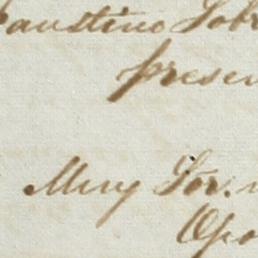 Faustino Sobr
presen
Muy Sor. 
Opo